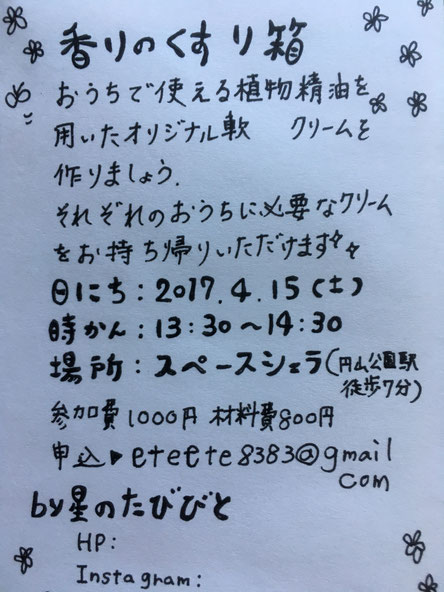 香りのくすり箱
おうちで使える植物精油を
用いたオリジナル軟 クリームを
作りましょう.
それぞれのおうちに必要なクリーム
をお持ち帰りいただけます
日にち：2017.4.15(土)
時かん：13:30〜14:30
場所：スペースシェラ(円山公園駅
徒歩7分)
参加費1000円 材料費800円
申込▶eteete8383@gmail
com
by星のたびびと
HP:
Instagram: